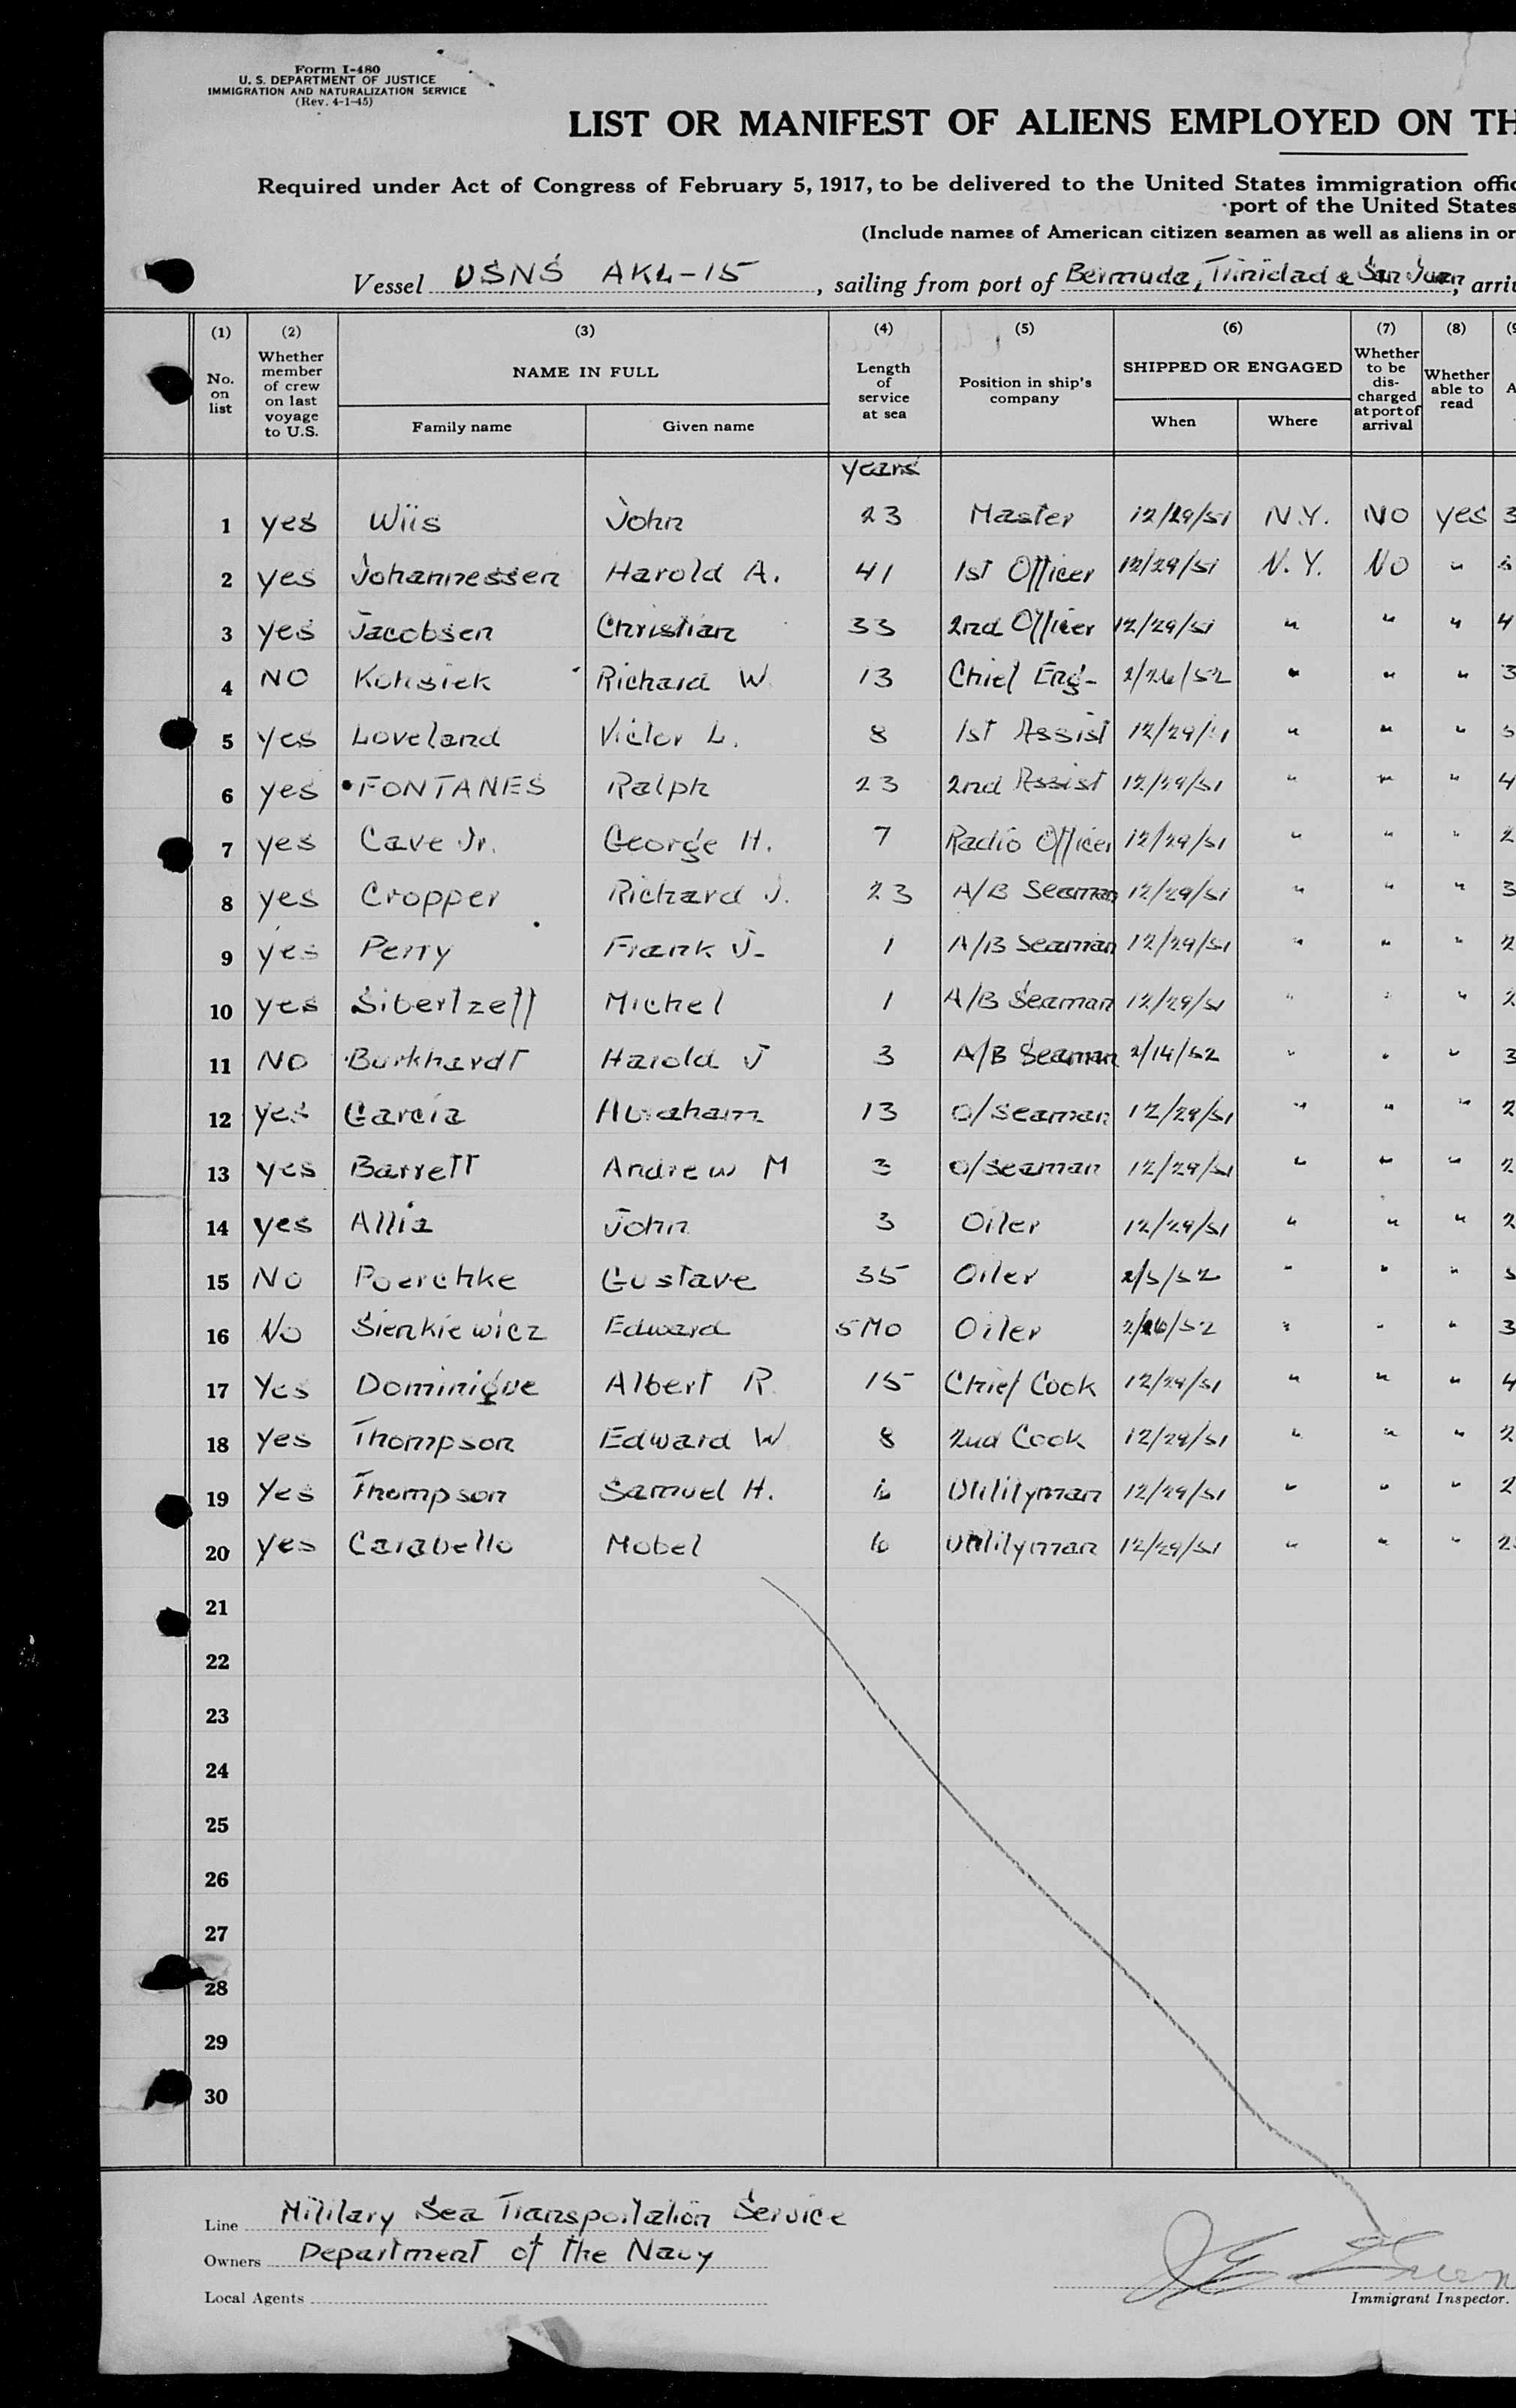 Form I-480
U. S. DEPARTMENT OF JUSTICE
IMMIGRATION AND NATURALIZATION SERVICE
(Rev. 4-1-45)
LIST OR MANIFEST OF ALIENS EMPLOYED ON TH
Required under Act of Congress of February 5, 1917, to be delivered to the United States immigration offic
port of the United States
(Include names of American citizen seamen as well as aliens in or
Vessel USNS AKL-15, sailing from port of Bermuda, Trinidad & San Juan, arri
(1) (2) (3) (4) (5) (6) (7) (8) (9
No. on list
Whether member of crew on last voyage to U.S.
NAME IN FULL
Family name Given name
Length of service at sea
Position in ship's company
SHIPPED OR ENGAGED
When Where
Whether to be dis-charged at port of arrival
Whether able to read
A
years
1 yes Wiis John 23 Master 12/29/51 N.Y. NO yes 3
2 yes Johannessen Harold A. 41 1st Officer 12/29/51 N.Y. NO "
3 yes Jacobsen Christian 33 2nd Officer 12/29/51 " " " 4
4 NO Kohsiek Richard W. 13 Chief Eng- 2/26/52 " " " 3
5 yes Loveland Victor L. 8 1st Assist 12/29/51 " " " 5
6 yes FONTANES Ralph 23 2nd Assist 12/29/51 " " " 4
7 yes Cave Jr. George H. 7 Radio Officer 12/29/51 " " " 2
8 yes Cropper Richard J. 23 A/B Seaman 12/29/51 " " " 3
9 yes Perry Frank J- 1 A/B Seaman 12/29/51 " " " 2
10 yes Sibertzeff Michel 1 A/B Seaman 12/29/51 " " " 2
11 NO Burkhardt Harold J 3 A/B Seaman 2/14/52 " " " 3
12 yes Garcia Abraham 13 O/Seaman 12/29/51 " " " 2
13 yes Barrett Andrew M 3 O/seaman 12/29/51 " " " 2
14 yes Allia John 3 Oiler 12/29/51 " " " 2
15 No Poerchke Gustave 35 Oiler 2/5/52 " " " 5
16 No Sienkiewicz Edward 5 MO Oiler 2/26/52 " " " 3
17 Yes Dominique Albert R. 15 Chief Cook 12/29/51 " " " 4
18 Yes Thompson Edward W. 8 2nd Cook 12/29/51 " " " 2
19 Yes Thompson Samuel H. 6 Utilityman 12/29/51 " " " 2
20 yes Carabello Mobel 6 Utilityman 12/29/51 " " " 2
21
22
23
24
25
26
27
28
29
30
Line Military Sea Transportation Service
Owners Department of the Navy
Local Agents
Immigrant Inspector.